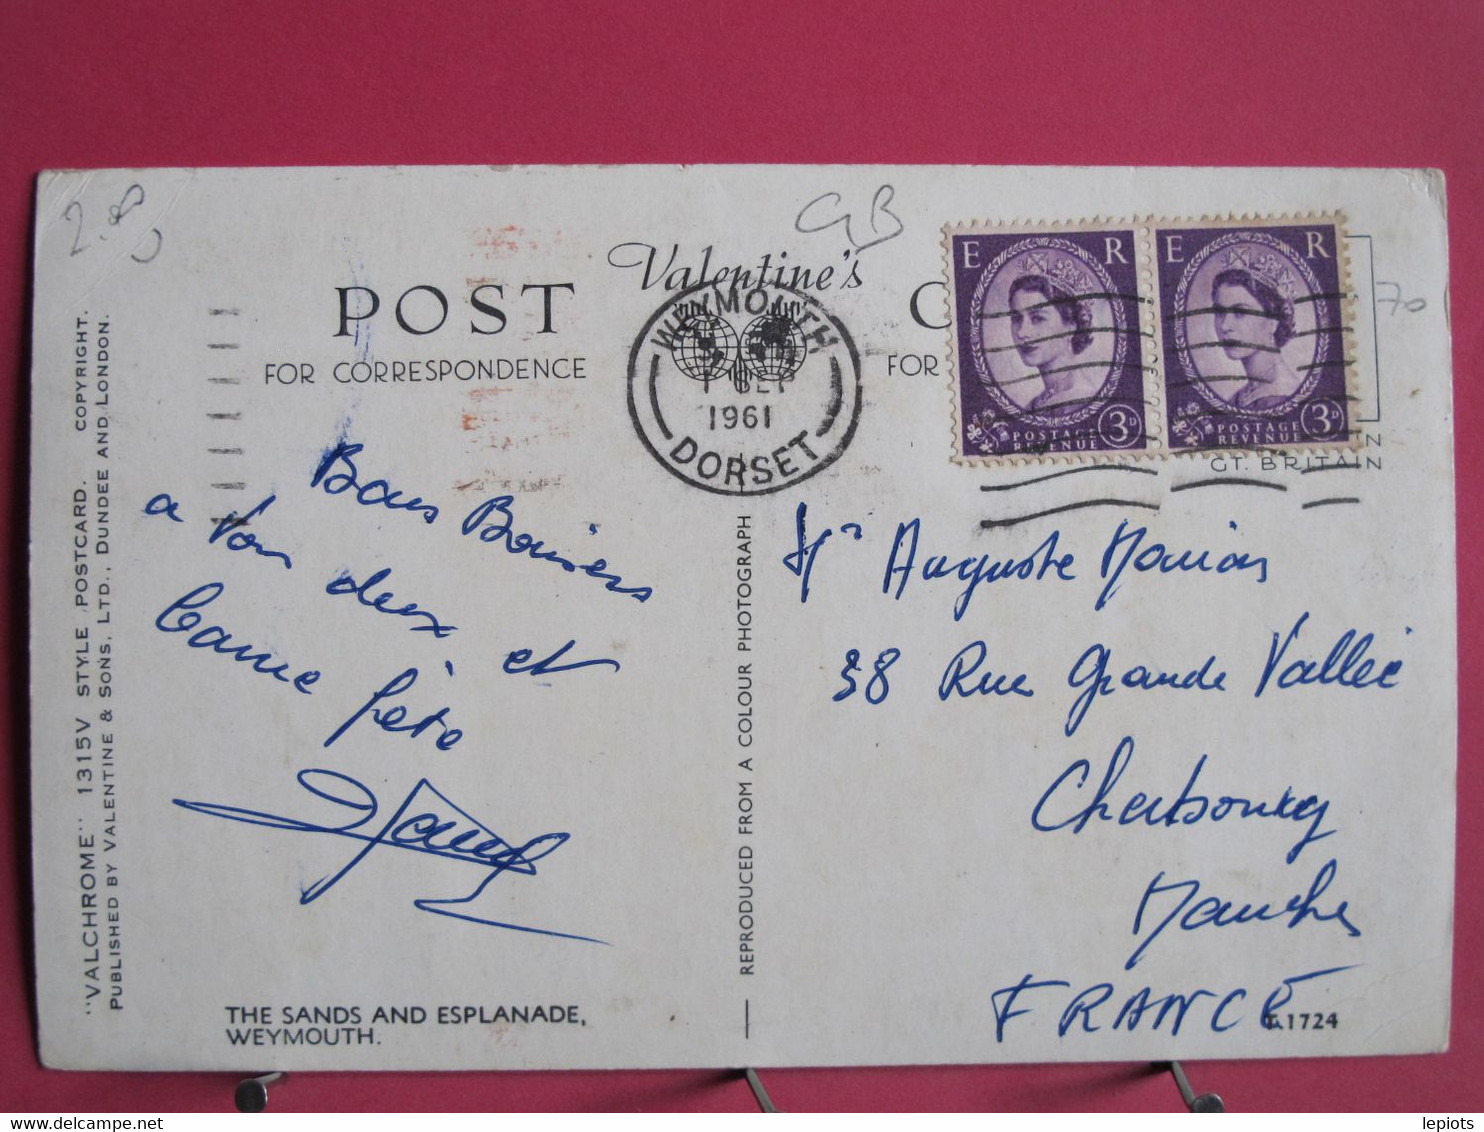 2.80
GB
70
Valentine's
POST C
FOR CORRESPONDENCE FOR
WEYMOUTH
1 SEP
1961
DORSET
E R
3D
POSTAGE
REVENUE
E R
3D
POSTAGE
REVENUE
GT. BRITAIN
Bons Baisers
a vous deux et
bonne fête
Mr Auguste
38 Rue Grande Vallée
Cherbourg
Manche
FRANCE
T.1724
THE SANDS AND ESPLANADE,
WEYMOUTH.
"VALCHROME" 1315V STYLE POSTCARD. COPYRIGHT.
PUBLISHED BY VALENTINE & SONS, LTD., DUNDEE AND LONDON.
REPRODUCED FROM A COLOUR PHOTOGRAPH
lepiots